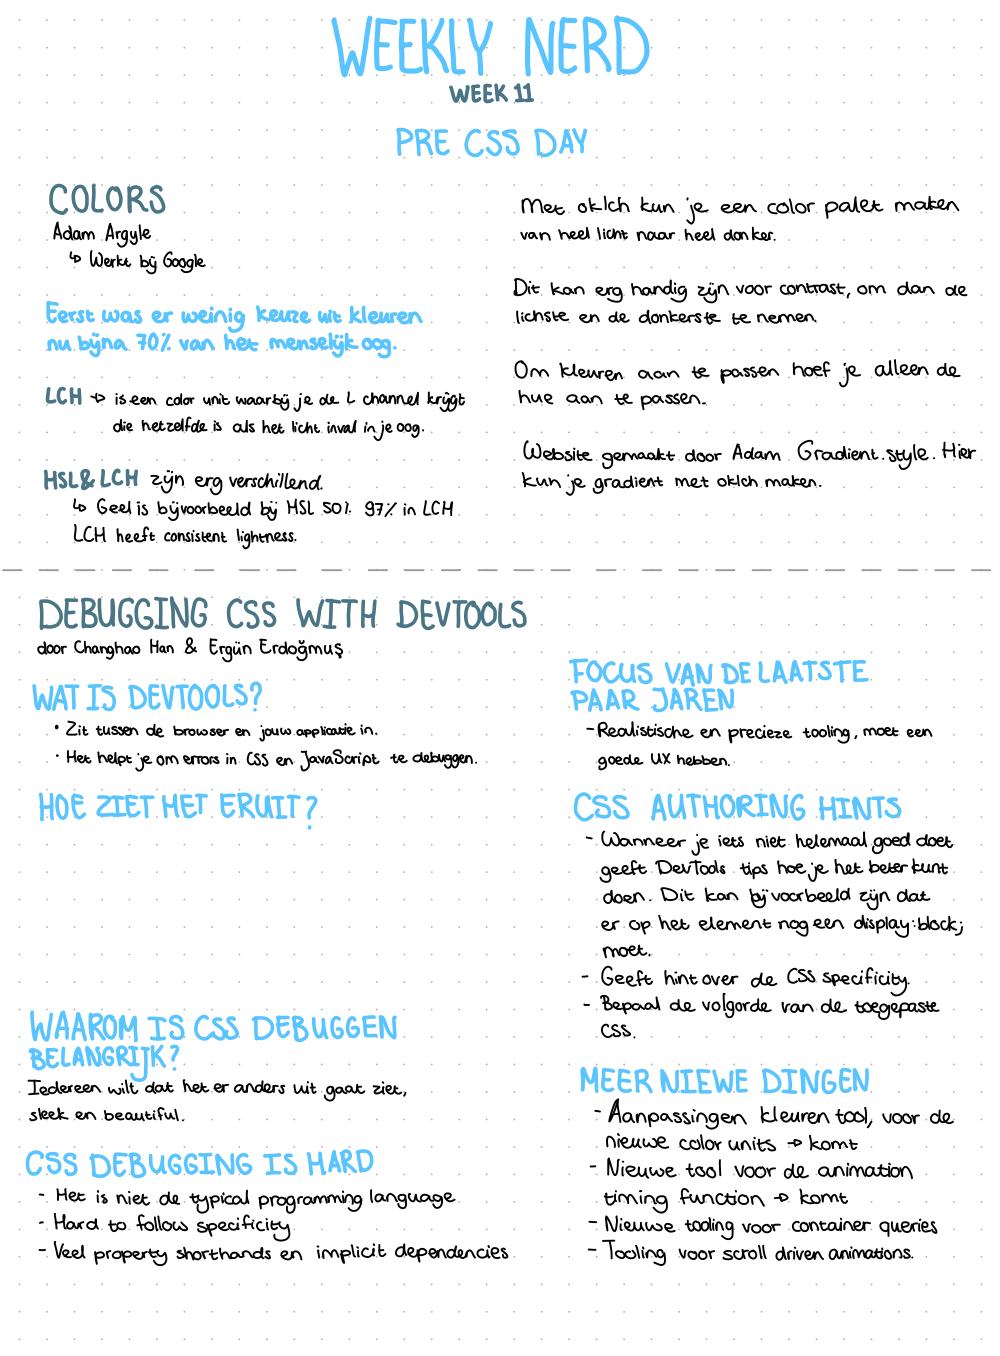 WEEKLY NERD
WEEK 11
PRE CSS DAY
COLORS
Adam Argyle
↳ Werkt bij Google
Eerst was er weinig keuze uit kleuren
nu bijna 70% van het menselijk oog.
LCH → is een color unit waarbij je de L channel krijgt
die hetzelfde is als het licht inval in je oog.
HSL & LCH zijn erg verschillend.
↳ Geel is bijvoorbeeld bij HSL 50%. 97% in LCH
LCH heeft consistent lightness.
Met oklch kun je een color palet maken
van heel licht naar heel donker.
Dit kan erg handig zijn voor contrast, om dan de
lichste en de donkerste te nemen.
Om kleuren aan te passen hoef je alleen de
hue aan te passen.
Website gemaakt door Adam Gradient.style. Hier
kun je gradient met oklch maken.
DEBUGGING CSS WITH DEVTOOLS
door Changhao Han & Ergün Erdoğmuş
WAT IS DEVTOOLS?
• Zit tussen de browser en jouw applicatie in.
• Het helpt je om errors in CSS en JavaScript te debuggen.
HOE ZIET HET ERUIT?
WAAROM IS CSS DEBUGGEN
BELANGRIJK?
Iedereen wilt dat het er anders uit gaat ziet,
sleek en beautiful.
CSS DEBUGGING IS HARD
- Het is niet de typical programming language
- Hard to follow specificity
- Veel property shorthands en implicit dependencies
FOCUS VAN DE LAATSTE
PAAR JAREN
- Realistische en precieze tooling, moet een
goede UX hebben.
CSS AUTHORING HINTS
- Wanneer je iets niet helemaal goed doet
geeft DevTools tips hoe je het beter kunt
doen. Dit kan bijvoorbeeld zijn dat
er op het element nog een display:block;
moet.
- Geeft hint over de CSS specificity.
- Bepaal de volgorde van de toegepaste
CSS.
MEER NIEWE DINGEN
- Aanpassingen kleuren tool, voor de
nieuwe color units → komt
- Nieuwe tool voor de animation
timing function → komt
- Nieuwe tooling voor container queries
- Tooling voor scroll driven animations.